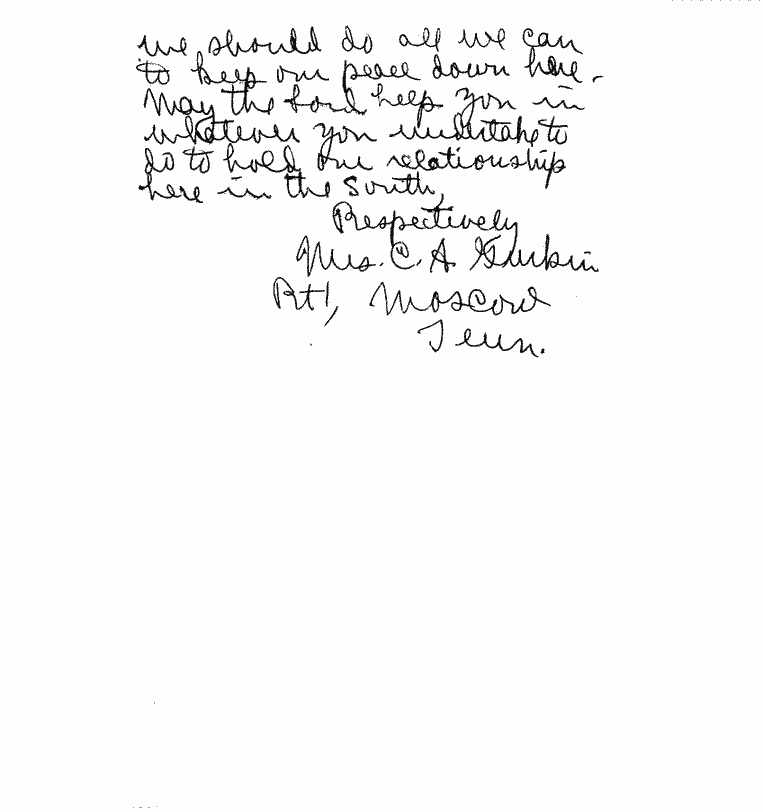 we should do all we can
to keep our peace down here.
May the Lord help you in
whatever you undertake to
do to hold our relationship
here in the South,
Respectively
Mrs. C. A. Gurkin
Rt 1, Moscow
Tenn.